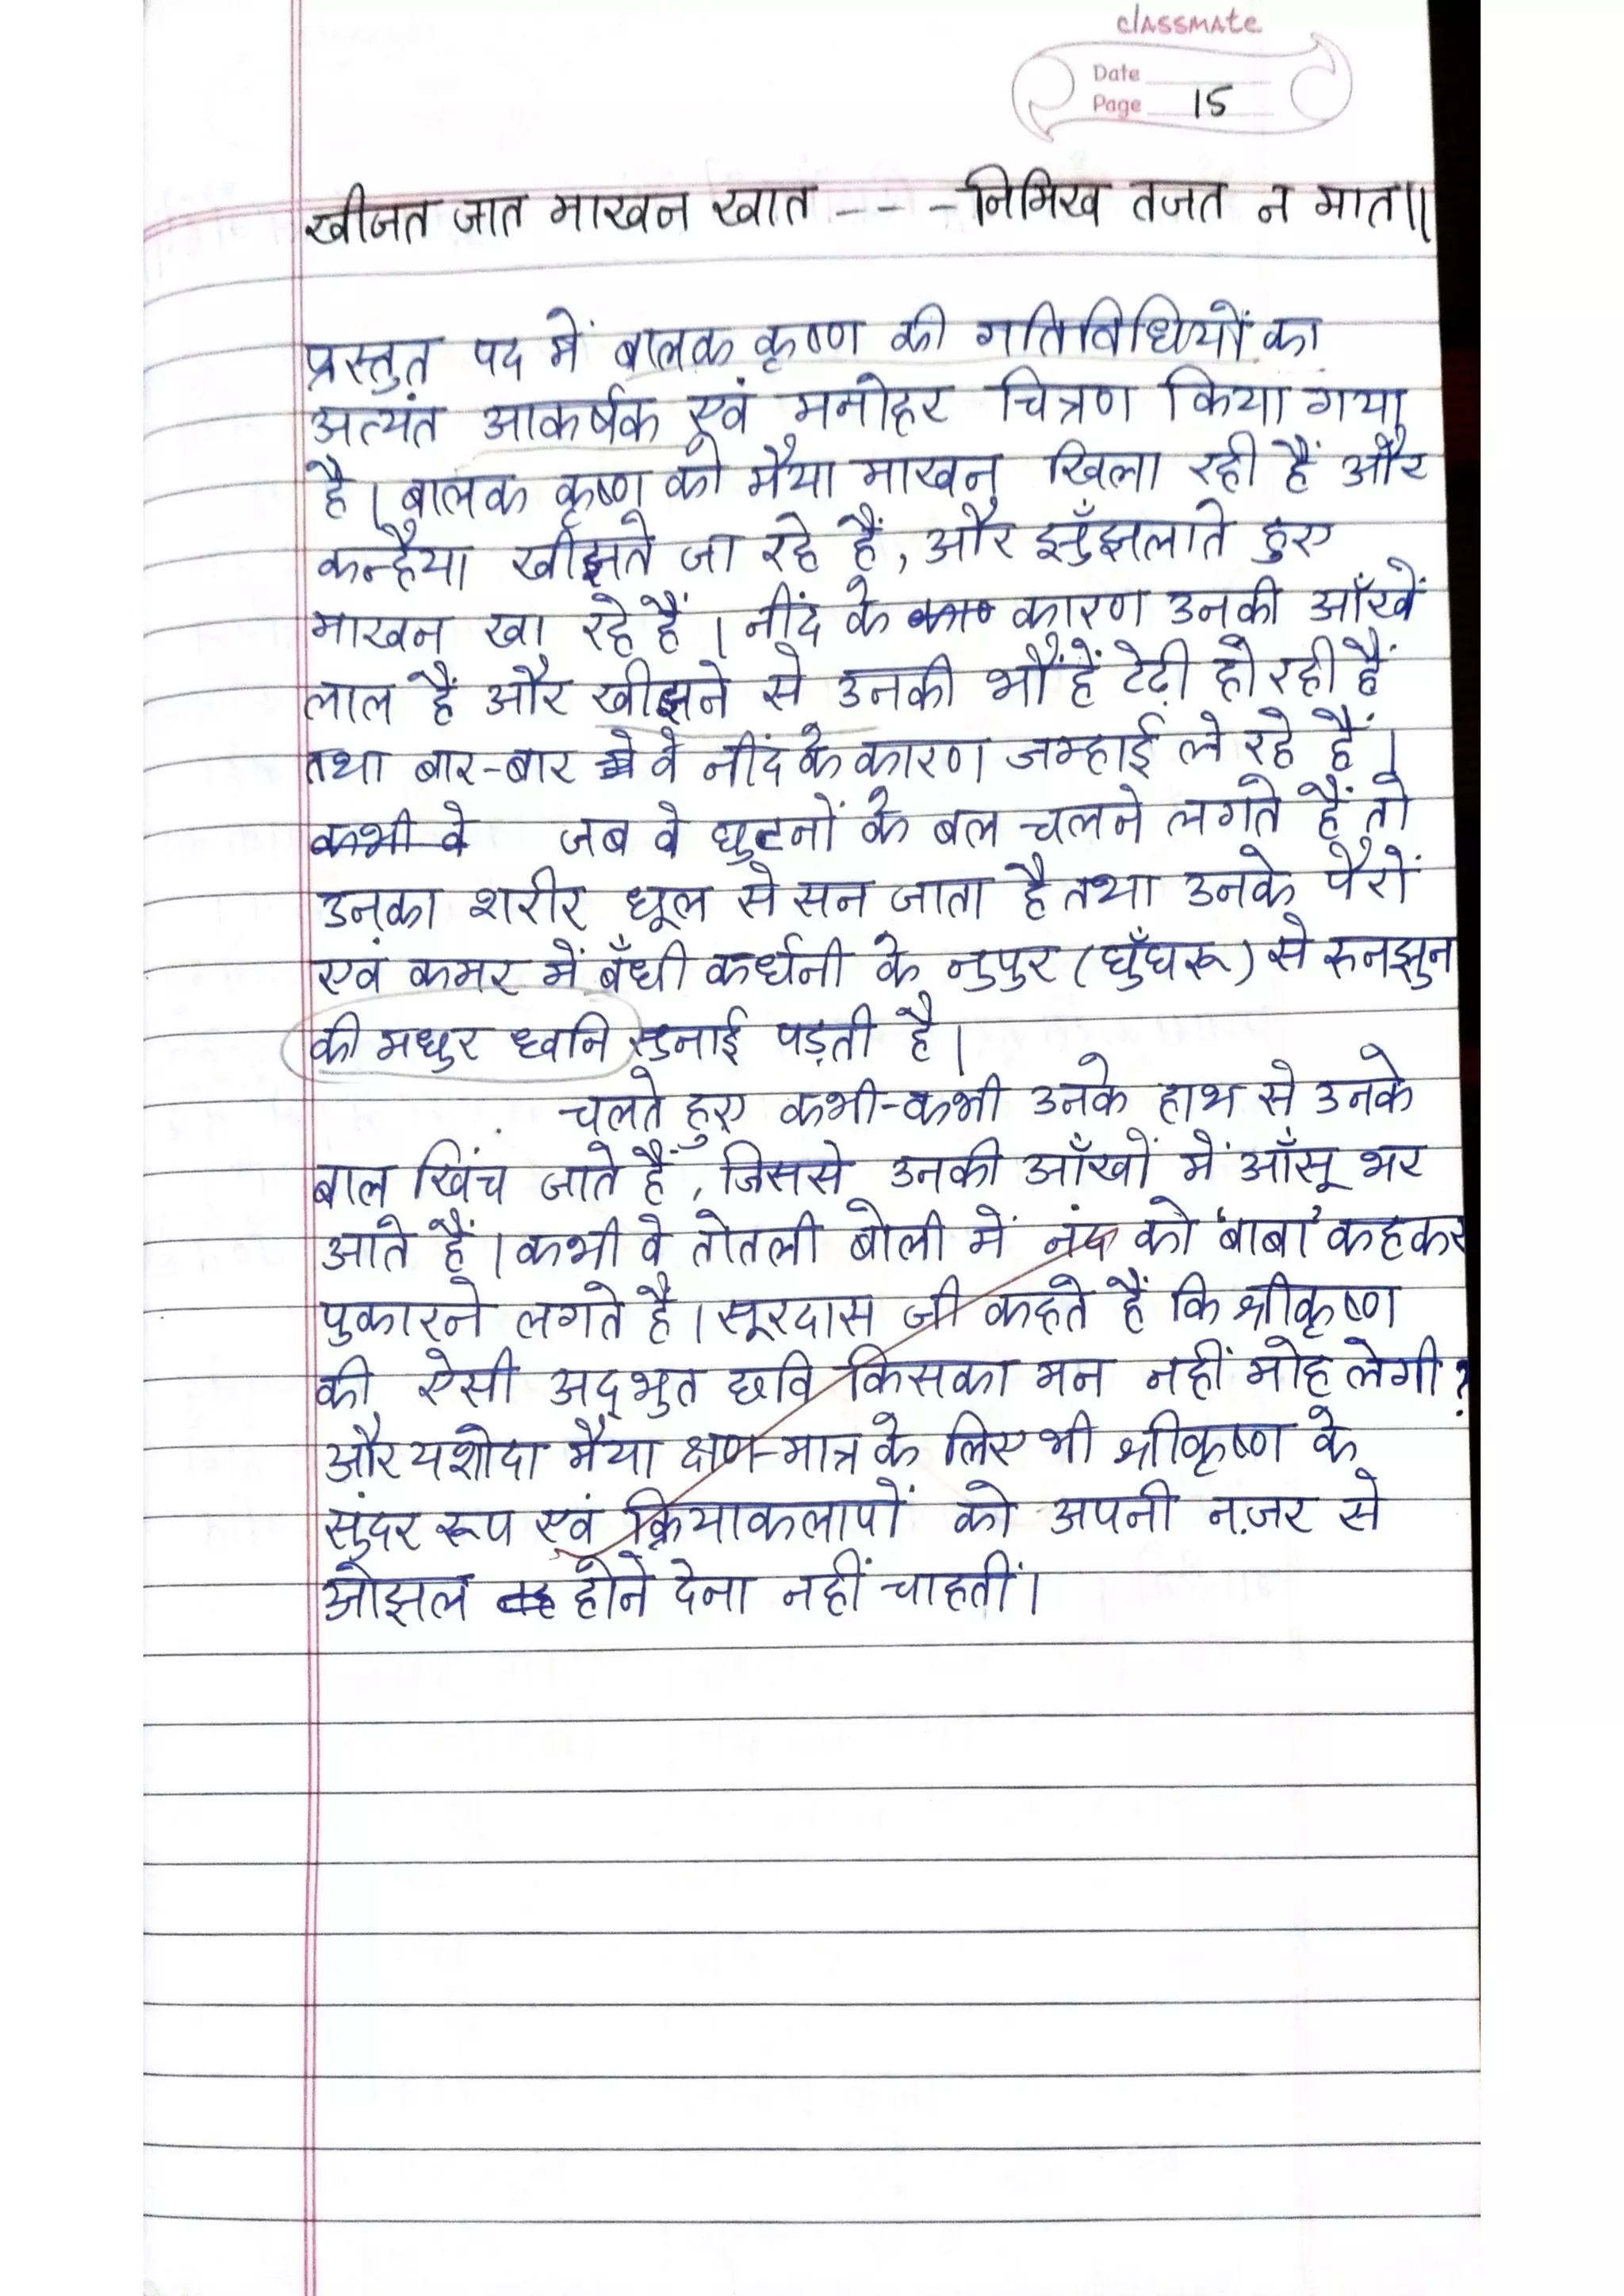 classmate
Date
Page 15
खीजत जात माखन खात - - - निमिख तजत न मात॥
प्रस्तुत पद में बालक कृष्ण की गतिविधियों का
अत्यंत आकर्षक एवं मनोहर चित्रण किया गया
है। बालक कृष्ण को मैया माखन खिला रही हैं और
कन्हैया खीझते जा रहे हैं, और झुँझलाते हुए
माखन खा रहे हैं। नींद के कारण उनकी आँखें
लाल हैं और खीझने से उनकी भौंहें टेढ़ी हो रही हैं
तथा बार-बार वे नींद के कारण जम्हाई ले रहे हैं।
कभी वे जब वे घुटनों के बल चलने लगते हैं तो
उनका शरीर धूल से सन जाता है तथा उनके पैरों
एवं कमर में बँधी कर्धनी के नुपुर (घुँघरू) से रुनझुन
की मधुर ध्वनि सुनाई पड़ती है।
चलते हुए कभी-कभी उनके हाथ से उनके
बाल खिंच जाते हैं, जिससे उनकी आँखों में आँसू भर
आते हैं। कभी वे तोतली बोली में नंद को 'बाबा' कहकर
पुकारने लगते हैं। सूरदास जी कहते हैं कि श्रीकृष्ण
की ऐसी अद्भुत छवि किसका मन नहीं मोह लेगी?
और यशोदा मैया क्षण-मात्र के लिए भी श्रीकृष्ण के
सुंदर रूप एवं क्रियाकलापों को अपनी नज़र से
ओझल होने देना नहीं चाहतीं।